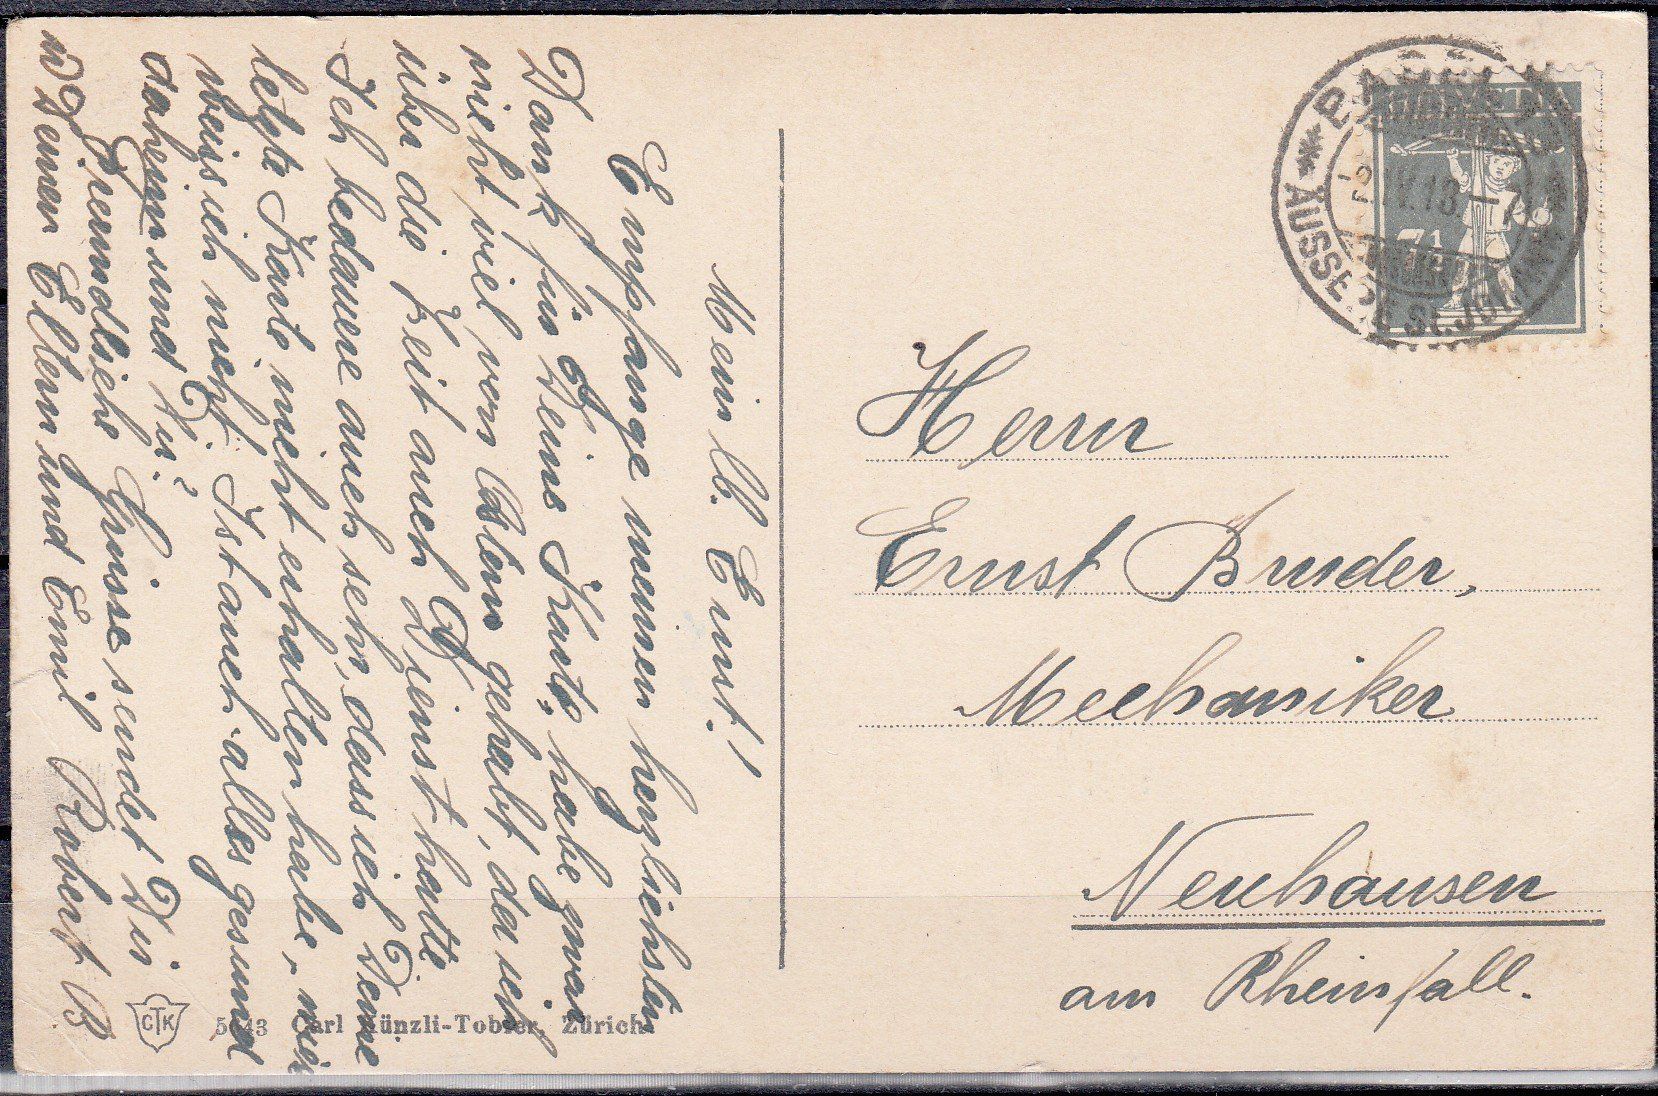 Mein lb. Ernst!
Empfange meinen herzlichsten
Dank für Deine Karte, habe zwar
nicht viel von Ostern gehabt, da ich
über die Zeit auch Dienst hatte.
Ich bedauere auch sehr, dass ich Deine
letzte Karte nicht erhalten habe,
weiss ich nicht. Ist auch alles gesund
daheim und Du?
Freundliche Grüsse sendet Dir
u Deinen Eltern und Emil Robert B
CTK
5043 Carl Künzli-Tobler, Zürich
HELVETIA
7½
BASEL
IV.18.
ÄUSSERE St. JOHANN
Herrn
Ernst Bruder,
Mechaniker
Neuhausen
am Rheinfall.